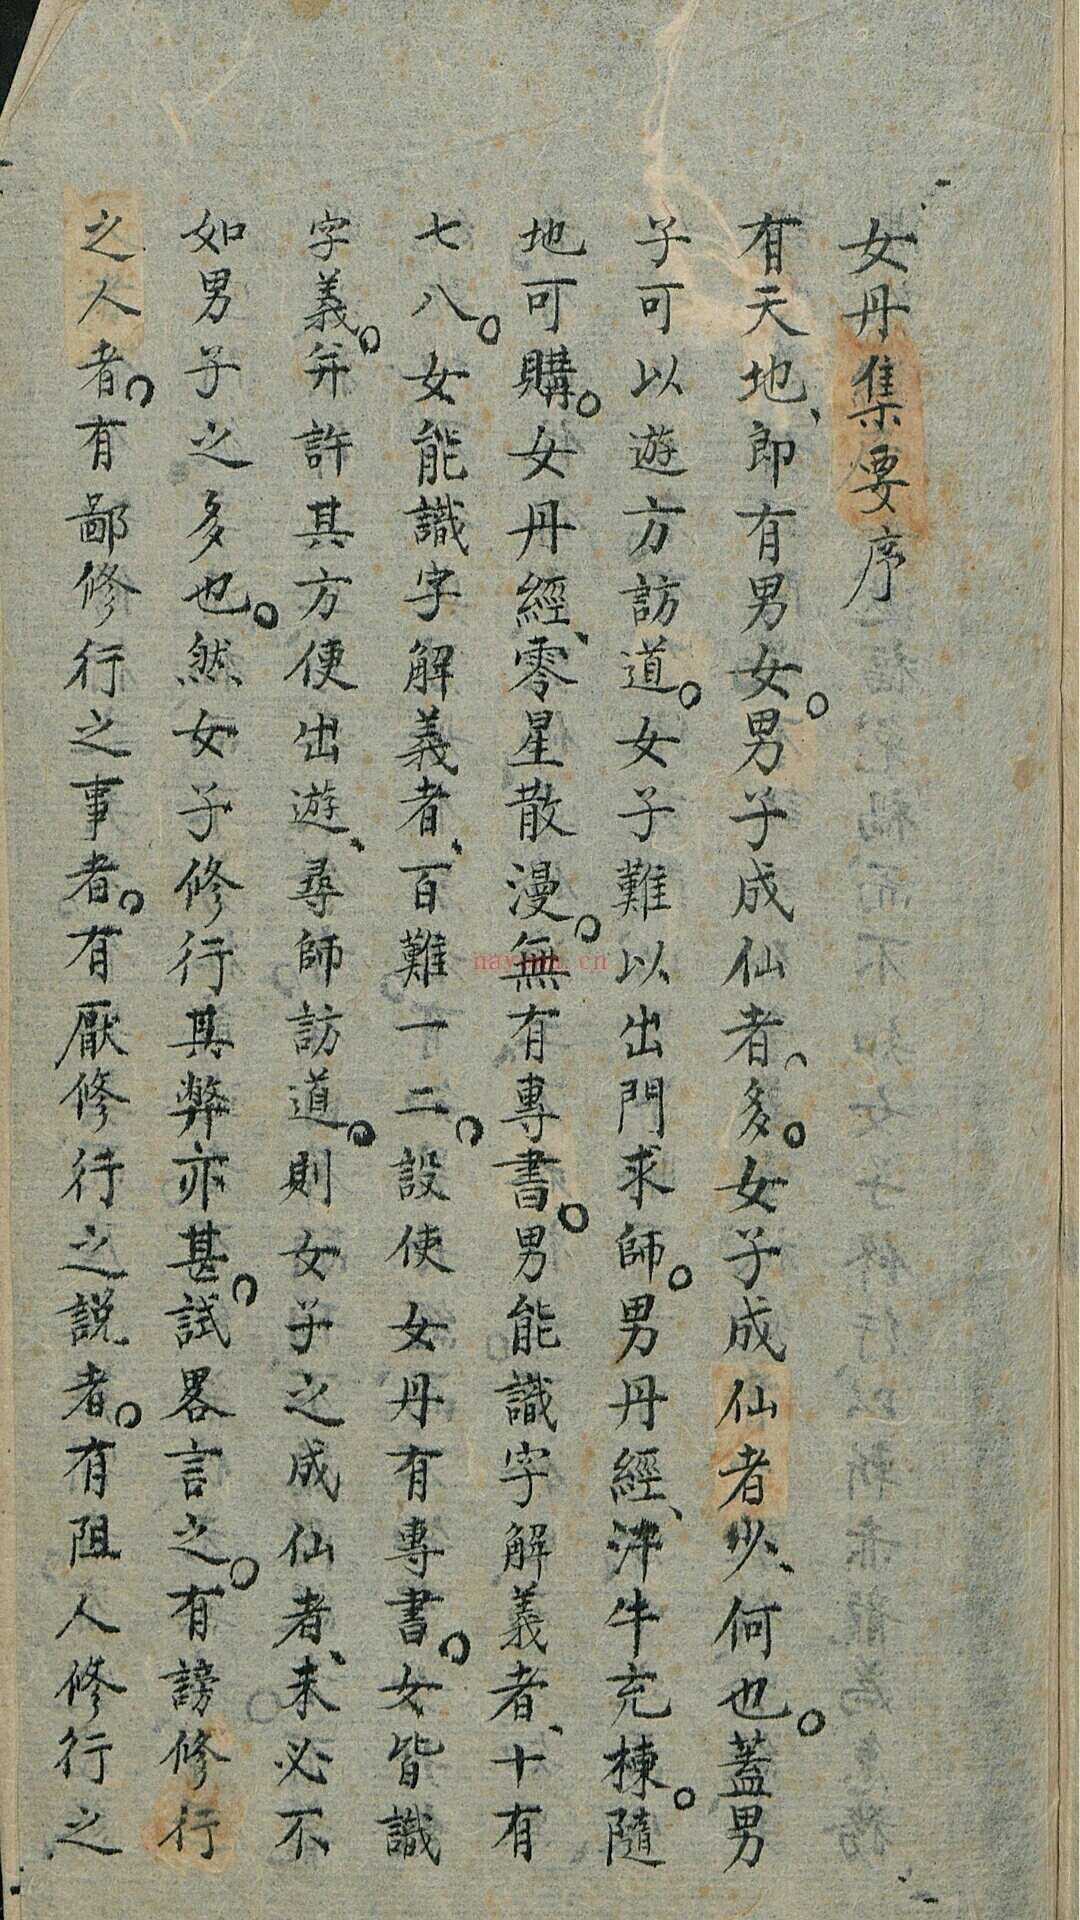 女丹集要序
有天地、即有男女。男子成仙者、多。女子成仙者少、何也。蓋男
子可以遊方訪道。女子難以出門求師。男丹經、汗牛充棟。隨
地可購。女丹經、零星散漫。無有專書。男能識字解義者、十有
七八。女能識字解義者、百難一二。設使女丹有專書。女皆識
字義。并許其方便出遊、尋師訪道。則女子之成仙者、未必不
如男子之多也。然女子修行其弊亦甚。試畧言之。有謗修行
之人者。有鄙修行之事者。有厭修行之説者。有阻人修行之
nayona.cn